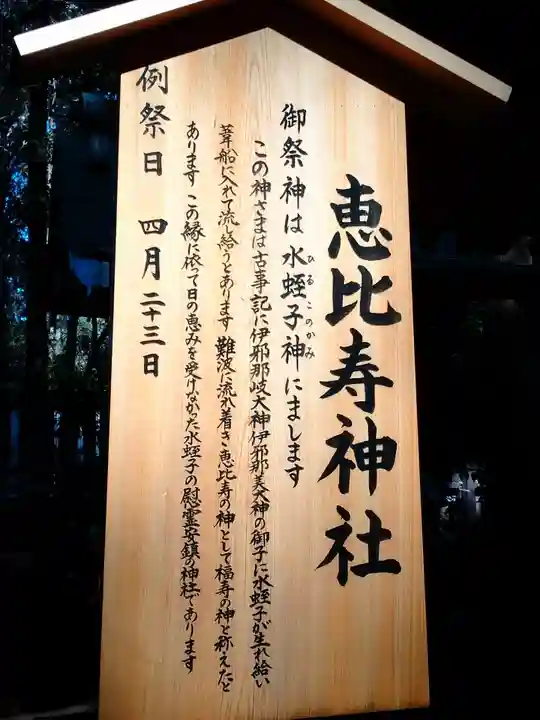 恵比寿神社
御祭神は水蛭子神にまします
ひるこのかみ
この神さまは古事記に伊邪那岐大神伊邪那美大神の御子に水蛭子が生れ給い
葦船に入れて流し給うとあります 難波に流れ着き恵比寿の神として福寿の神と称えたと
あります この縁に依て日の恵みを受けなかった水蛭子の慰霊安鎮の神社であります
例祭日 四月二十三日